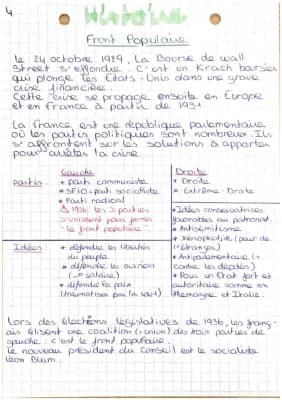 4
Histoire
Front Populaire
Le 24 octobre 1929, La Bourse de wall
Street s'effondre. C'est un Krach boursier
qui plonge les États-Unis dans une grave
crise financière.
Cette crise se propage ensuite en Europe
et en France à partir de 1931
La France est une république parlementaire
où les partis politiques sont nombreux. Ils
s'affrontent sur les solutions à apporter
pour arrêter la crise
Gauche
Droite
Partis
* Parti communiste
* SFIO = parti socialiste
* Parti radical
⚠ 1936: les 3 partis
s'unissent pour former
"le front populaire"
* Droite
* Extrême-Droite
Idées
* défendre les libertés
du peuple
* défendre les ouvriers
(→ salaire)
* défendre la paix
(traumatisés par la WW1)
* Idées conservatrices
favorables au patronat
* Antisémitisme
* Xénophobie (peur de
l'étranger)
* Antiparlementaire (=
contre les députés)
* Pour un État fort et
autoritaire comme en
Allemagne et Italie.
Lors des élections législatives de 1936, les franç-
ais élisent une coalition (= union) des trois parties de
gauche : c'est le front populaire.
Le nouveau président du Conseil est le socialiste
Léon Blum.